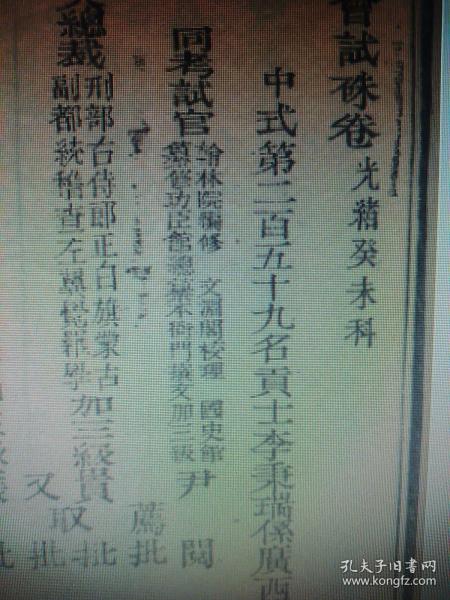 會試硃卷 光緒癸未科
中式第二百五十九名貢士李秉瑞係廣西
同考試官 翰林院編修 文淵閣校理 國史館
纂修功臣館總纂本衙門撰文加三級 尹 閱
薦批
總裁 刑部右侍郎正白旗蒙古
副都統稽查左翼覺羅學加三級貴 批
取
又批
批
孔夫子旧书网
www.kongfz.com